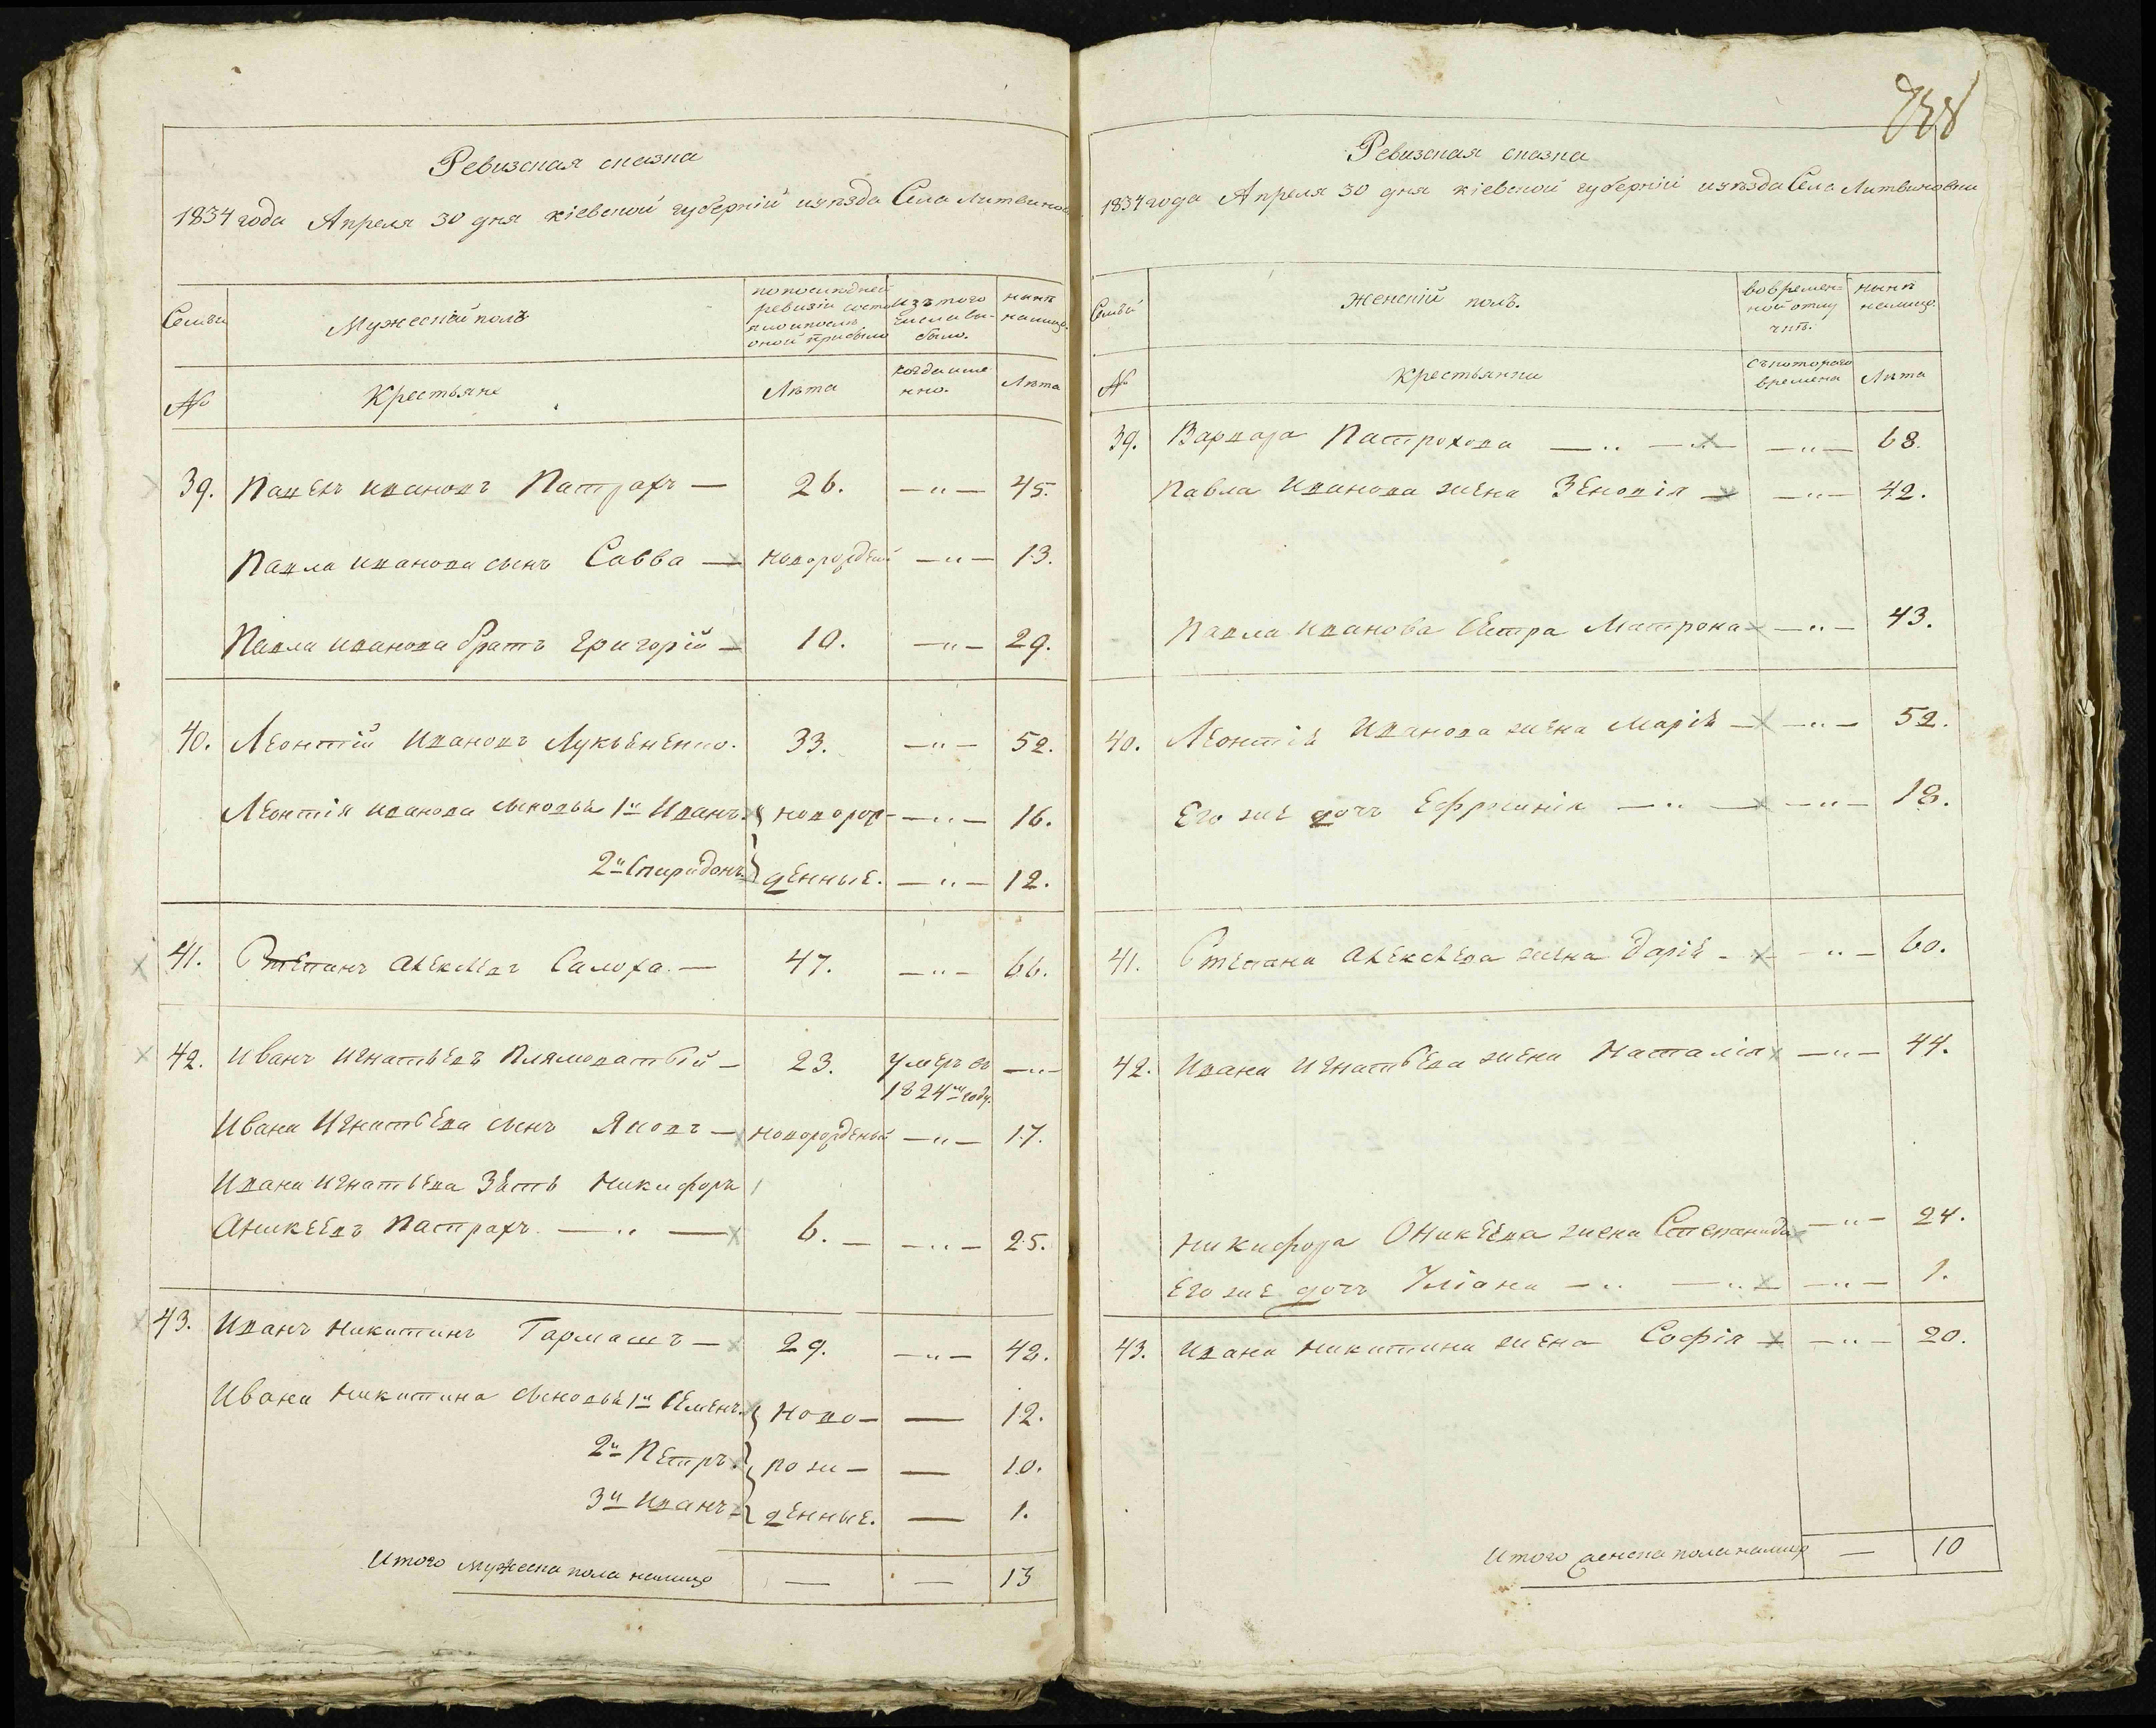 Ревизская сказка
1834 года Апреля 30 дня кіевской губерніи уѣзда Села Литвинов
Семьи
Мужескій полъ
по последней ревизіи состояло и после оной прибыло
Изъ того числа вы-было.
нынѣ налицо.
№
Крестьяне
Лѣта
когда име нно.
Лѣта
39. Павелъ Ивановъ Патрахъ — 26. —"— 45.
Павла Иванова сынъ Савва — новорожденый —"— 13.
Павла Иванова братъ Григорій — 10. —"— 29.
40. Леонтій Ивановъ Лукьененко. 33. —"— 52.
Леонтія Иванова сыновья 1й Иванъ. новорож- —"— 16.
2й Спиридонъ денные. —"— 12.
41. Степанъ Алексѣевъ Салоха. — 47. —"— 66.
42. Иванъ Игнатьевъ Плямоватый — 23. умеръ въ —"—
1824м году.
Ивана Игнатьева сынъ Яковъ — новорожденый —"— 17.
Ивана Игнатьева Зять Никифоръ
Аникеевъ Патрахъ. —"— 6. — —"— 25.
43. Иванъ Никитинъ Гармашъ — 29. —"— 42.
Ивана Никитина сыновья 1й Семенъ. ново — — 12.
2й Петръ. рож — — 10.
3й Иванъ денные. — 1.
Итого мужеска пола налицо — — 13
738
Ревизская сказка
1834 года Апреля 30 дня кіевской губерніи уѣзда Села Литвиновки
Семьи
Женскій полъ.
во времен-ной отлу чкѣ.
нынѣ налицо.
№
Крестьянки
съ котораго времени
Лѣта
39. Варвара Патрохова —"— —"— 68.
Павла Иванова жена Зеновія — —"— 42.
Павла Иванова Сестра Матрона —"— 43.
40. Леонтія Иванова жена Марія — —"— 52.
Его же дочъ Ефросинія —"— —"— 18.
41. Степана Алексеева жена Дарія - —"— 60.
42. Ивана Игнатьева жена Наталія —"— 44.
Никифора Оникеева жена Степанида —"— 24.
Его же дочъ Уліана —"— —"— 1.
43. Ивана Никитина жена Софія — —"— 20.
Итого женска пола налицо — 10